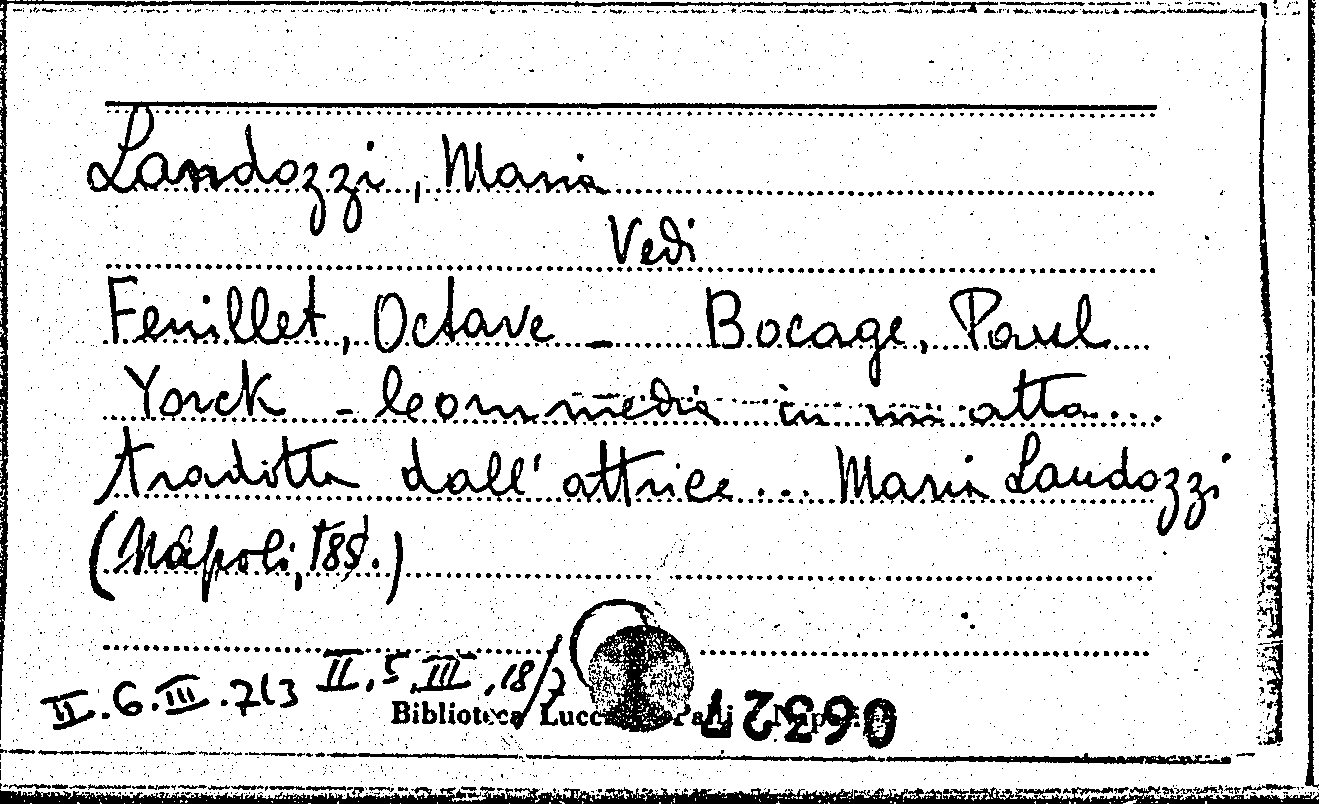 Landozzi, Maria
Vedi
Feuillet, Octave - Bocage, Paul
Yorck - Commedia in un atto...
tradotta dall'attrice... Maria Landozzi
(Napoli, 185.)
II.6.III.7(3 II.5.III.18/7
Biblioteca Lucchesi Palli - Napoli
06327